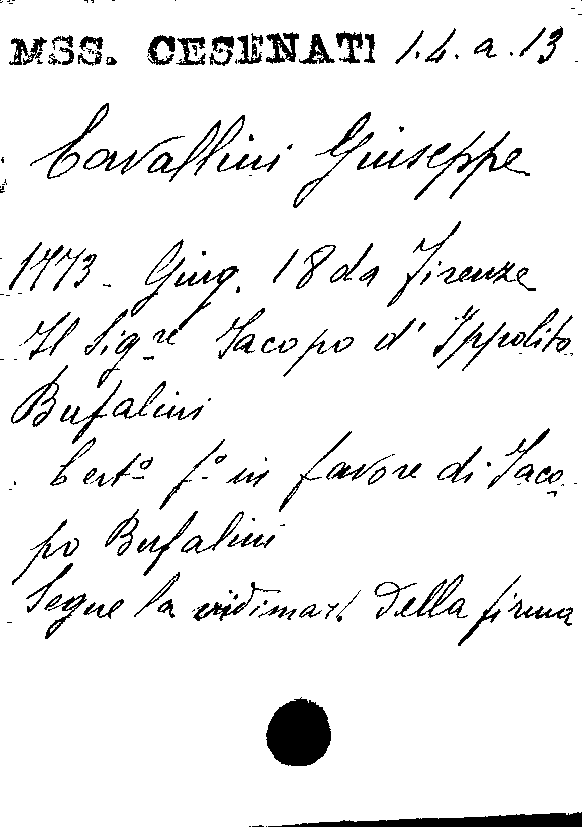 MSS. CESENATI 1.4.a.13
Cavallini Giuseppe
1773 - Giug. 18 da Firenze
Il Sig.re Jacopo d' Ippolito
Bufalini
Cert.o f.o in favore di Jaco-
po Bufalini
Segue la vidimaz. della firma